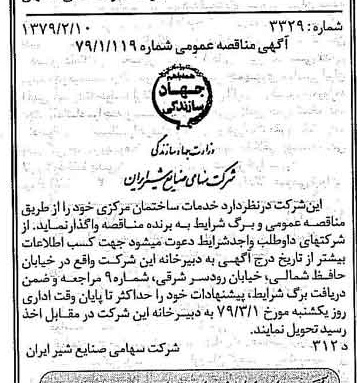 شماره: ۳۳۲۹
۱۳۷۹/۲/۱۰
آگهی مناقصه عمومی شماره ۷۹/۱/۱۱۹
همه با هم
جهاد
سازندگی
وزارت جهاد سازندگی
شرکت سهامی صنایع شیر ایران
این شرکت در نظر دارد خدمات ساختمان مرکزی خود را از طریق
مناقصه عمومی و برگ شرایط به برنده مناقصه واگذار نماید. از
شرکتهای داوطلب واجد شرایط دعوت میشود جهت کسب اطلاعات
بیشتر از تاریخ درج آگهی به دبیرخانه این شرکت واقع در خیابان
حافظ شمالی، خیابان رودسر شرقی، شماره ۹ مراجعه و ضمن
دریافت برگ شرایط، پیشنهادات خود را حداکثر تا پایان وقت اداری
روز یکشنبه مورخ ۷۹/۳/۱ به دبیرخانه این شرکت در مقابل اخذ
رسید تحویل نمایند.
د ۳۱۲
شرکت سهامی صنایع شیر ایران